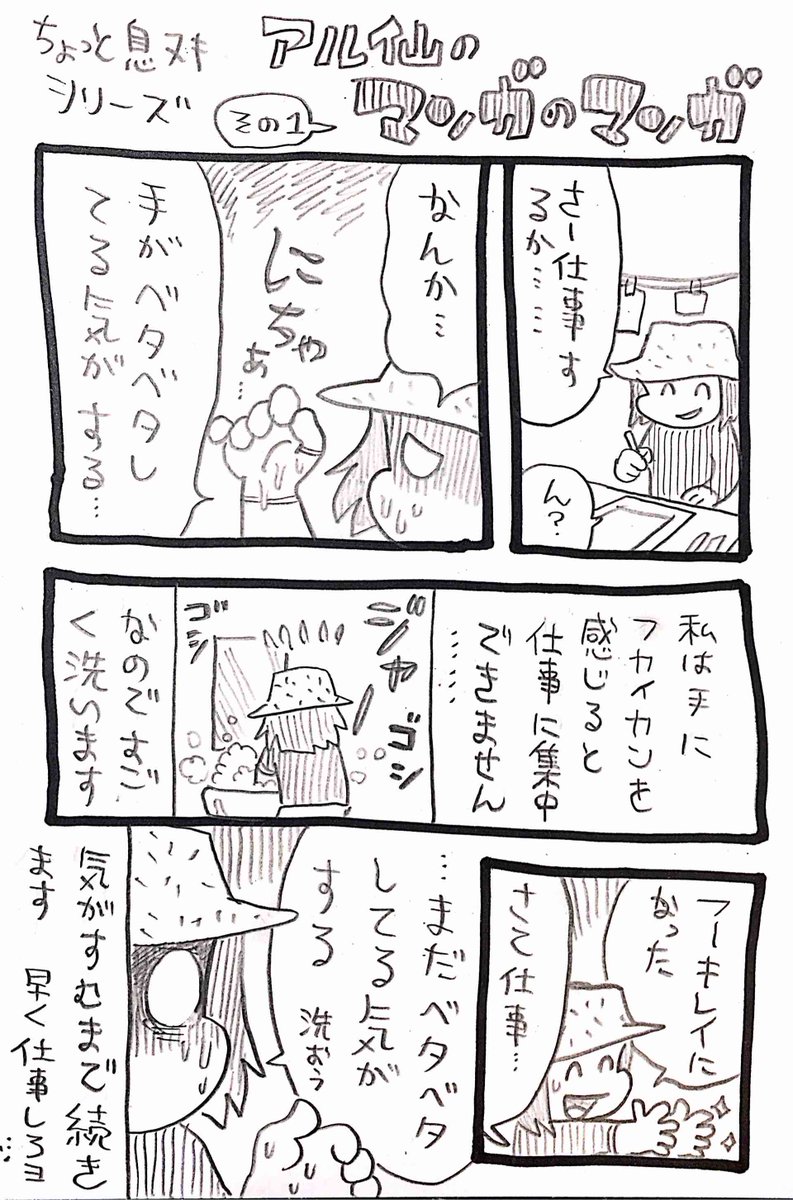 ちょっと息ヌキ
シリーズ
その1
アル仙の
マンガのマンガ
さー仕事す
るか……
ん?
なんか…
にちゃぁ…
手がベタベタし
てる気がする…
私は手に
フカイカンを
感じると
仕事に集中
できません
……
ジャー
ゴシ
ゴシ
なのですご
く洗います
フーキレイに
なった
さて仕事…
…まだベタベタ
してる気が
する
洗おう
気がすむまで続き
ます
早く仕事しろヨ
…